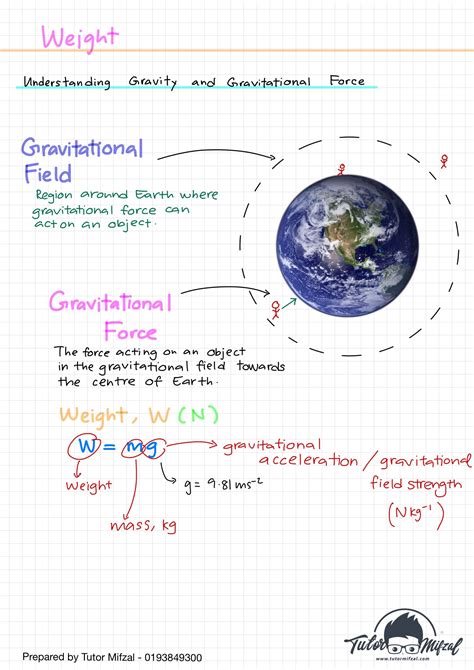 Weight
Understanding Gravity and Gravitational Force
Gravitational
Field
Region around Earth where
gravitational force can
act on an object.
Gravitational
Force
The force acting on an object
in the gravitational field towards
the centre of Earth.
Weight, W (N)
W = mg
gravitational
acceleration / gravitational
field strength
(N kg⁻¹)
weight
g = 9.81 ms⁻²
mass, kg
Tutor Mifzal
www.tutormifzal.com
Prepared by Tutor Mifzal - 0193849300